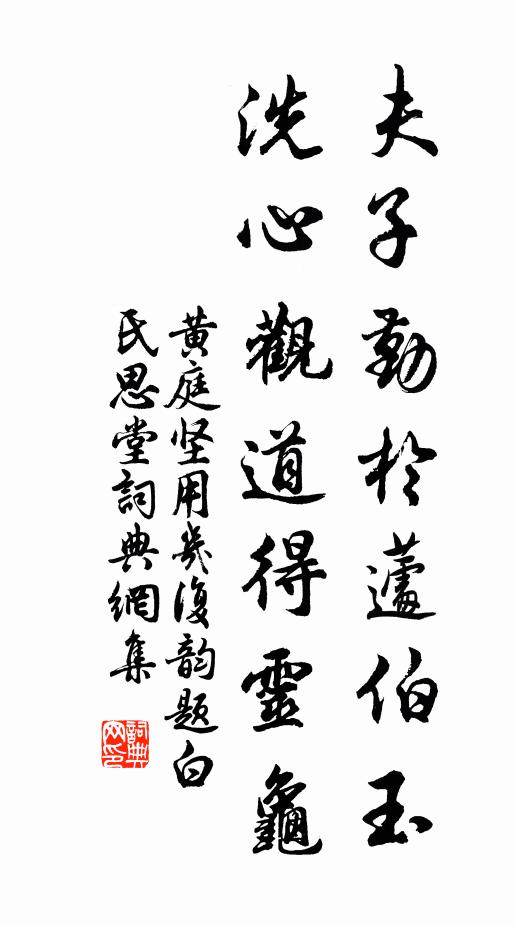 夫子勤於蘧伯玉
洗心觀道得靈龜
黄庭坚用幾復韵題白
民思堂詞典網集
詞典
网印